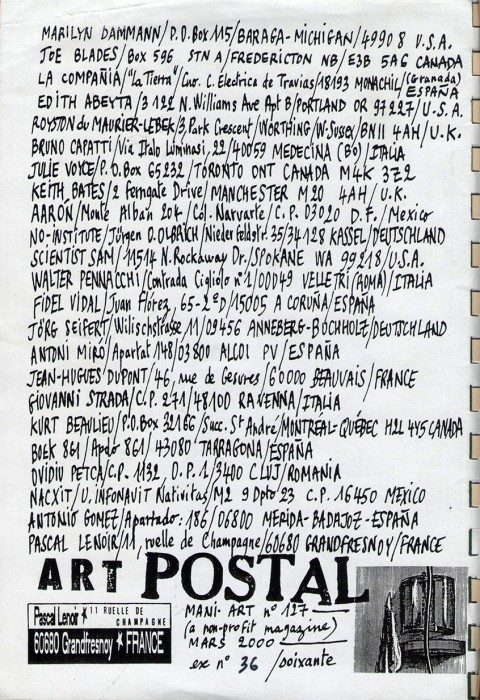 MARILYN DAMMANN/P.O.Box 115/BARAGA-MICHIGAN/49908 U.S.A.
JOE BLADES/Box 596 STN A/FREDERICTON NB/E3B 5A6 CANADA
LA COMPAÑIA/"La Tierra"/Cno. C. Electrica de Travias/18193 MONACHIL/(Granada)/ESPAÑA
EDITH ABEYTA/3122 N. Williams Ave Apt B/PORTLAND OR 97227/U.S.A.
ROYSTON du MAURIER-LEBEK/3, Park Crescent/WORTHING/W.Sussex/BN11 4AH/U.K.
BRUNO CAPATTI/Via Italo Luminasi, 22/40059 MEDECINA (Bo)/ITALIA
JULIE VOYCE/P.O.Box 65232/TORONTO ONT CANADA M4K 3Z2
KEITH BATES/2 Ferngate Drive/MANCHESTER M20 4AH/U.K.
AARÓN/Monte Albán 204/Col. Narvarte/C.P. 03020 D.F./Mexico
NO-INSTITUTE/Jürgen O.OLBRICH/Niederfeldstr. 35/34128 KASSEL/DEUTSCHLAND
SCIENTIST SAM/11514 N.Rockaway Dr./SPOKANE WA 99218/U.S.A.
WALTER PENNACCHI/Contrada Cigliolo n°1/00049 VELLETRI (ROMA)/ITALIA
FIDEL VIDAL/Juan Flórez, 65-2°D/15005 A CORUÑA/ESPAÑA
JÖRG SEIFERT/Wilischstrasse 11/09456 ANNEBERG-BUCHHOLZ/DEUTSCHLAND
ANTONI MIRÓ/Apartat 148/03800 ALCOI PV/ESPAÑA
JEAN-HUGUES DUPONT/46, rue de Gesvres/60000 BEAUVAIS/FRANCE
GIOVANNI STRADA/C.P. 271/48100 RAVENNA/ITALIA
KURT BEAULIEU/P.O.Box 32166/Succ. St André/MONTREAL-QUÉBEC H2L 4Y5 CANADA
BOEK 861/Apdo 861/43080 TARRAGONA/ESPAÑA
OVIDIU PETCA/C.P. 1132, O.P. 1/3400 CLUJ/ROMANIA
NACXIT/U. INFONAVIT Nativitas/M2 9 Dpto 23 C.P. 16450 MEXICO
ANTONIO GOMEZ/Apartado: 186/06800 MERIDA-BADAJOZ-ESPAÑA
PASCAL LENOIR/11, ruelle de Champagne/60680 GRANDFRESNOY/FRANCE
ART POSTAL
Pascal Lenoir * 11 RUELLE DE CHAMPAGNE
60680 Grandfresnoy * FRANCE
MANI-ART n° 127
(a non-profit magazine)
MARS 2000
ex n° 36 /soixante